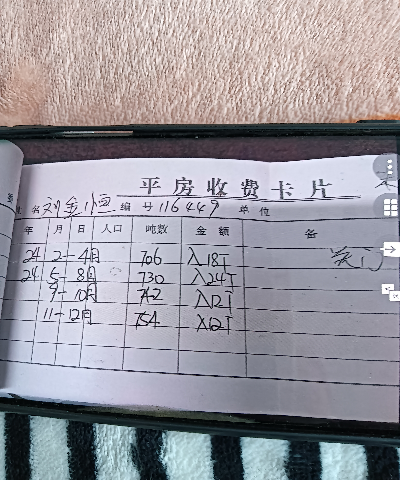 平房收费卡片
名 刘金恒 编号 116449 单位
年 月 日 人口 吨数 金额 备
24 2-4月 706 入18T 关门
24 5-8月 730 入24T
9-10月 742 入12T
11-12月 754 入12T